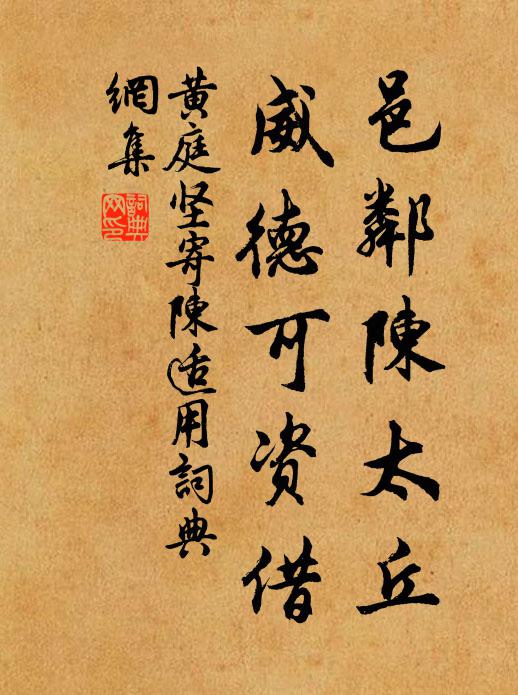 邑鄰陳太丘
威德可资借
黄庭坚寄陳适用詞典
網集
詞典
网印